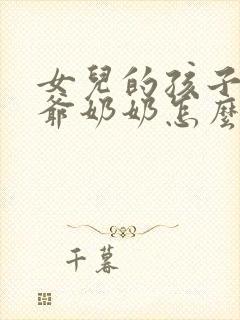 女兒的孩子
爺奶奶怎麼
千暮